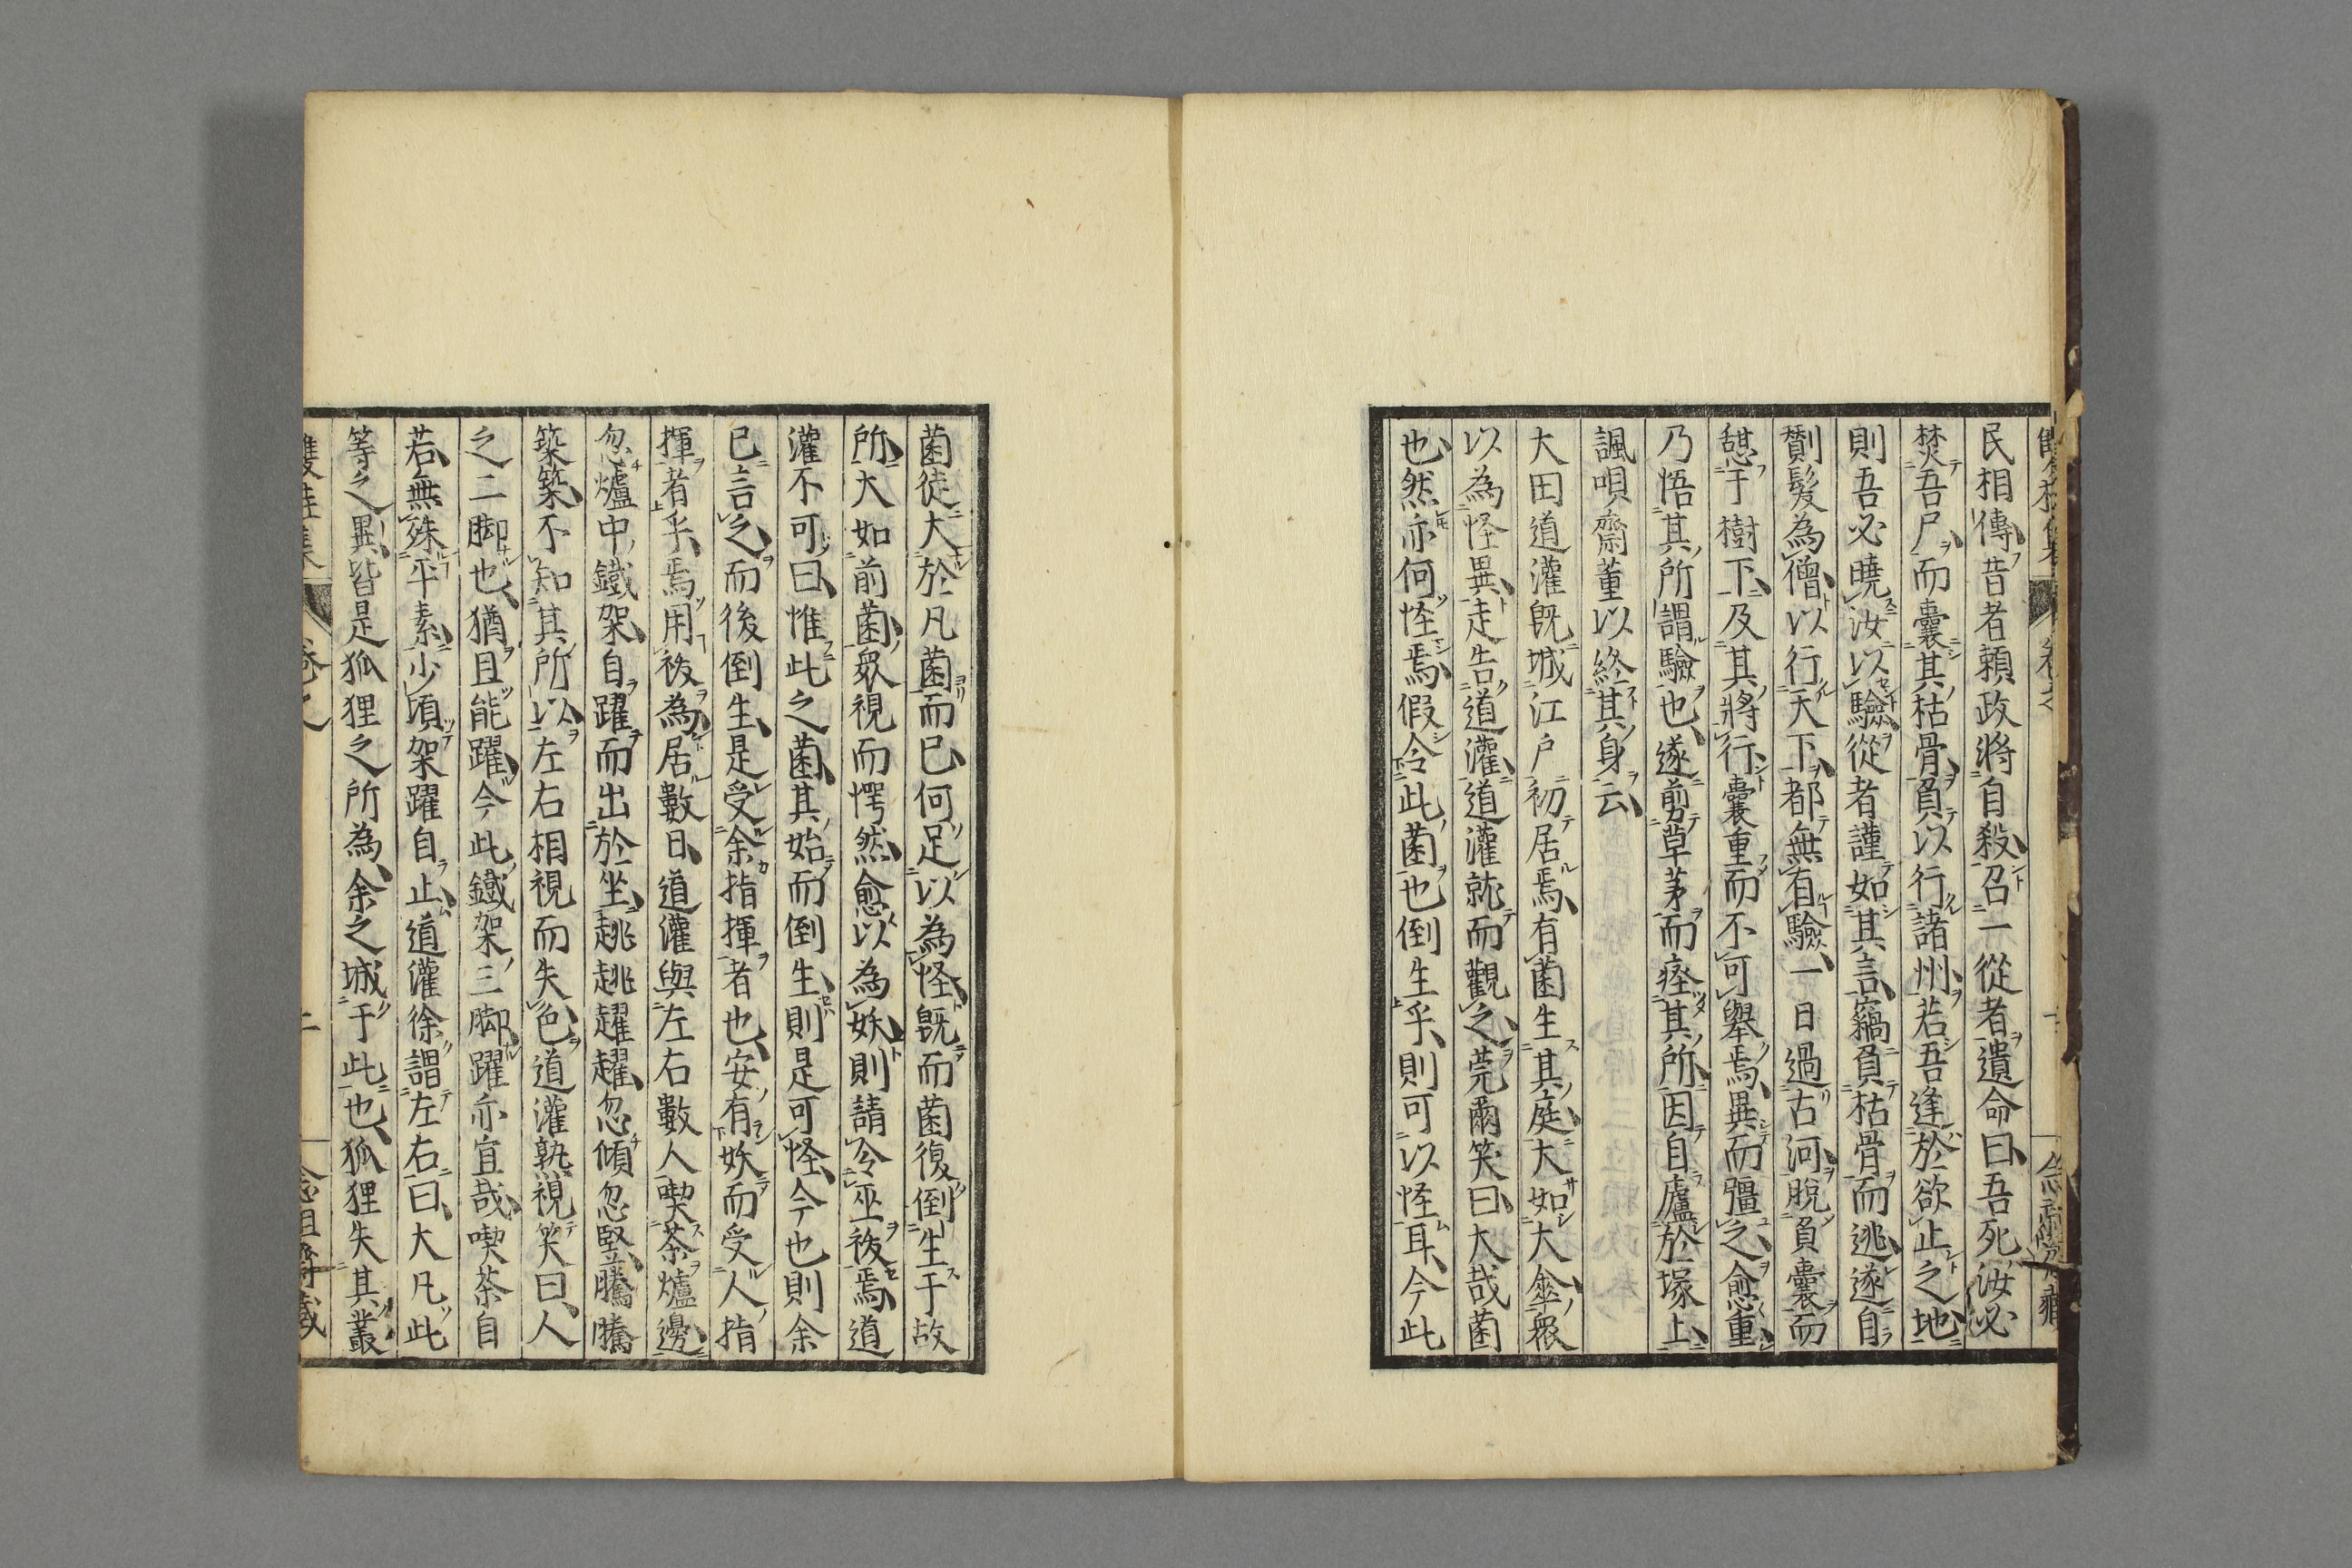 民相傳昔者頼政將自殺召一從者遺命曰吾死汝必
焚吾尸而囊其枯骨負以行諸州若吾逢於欲止之地
則吾必曉汝以驗從者謹如其言竊負枯骨而逃遂自
鬀髮為僧以行天下都無有驗一日過古河脫負囊而
憇于樹下及其將行囊重而不可舉焉異而彊之愈重
乃悟其所謂驗也遂剪草茅而瘞其所因自廬於塚上
諷唄齋薫以終其身云
大田道灌既城江戸初居焉有菌生其庭大如大傘衆
以為怪異走告道灌道灌就而觀之莞爾笑曰大哉菌
也然亦何怪焉假令此菌也倒生乎則可以怪耳今此
菌徒大於凡菌而已何足以為怪既而菌復倒生于故
所大如前菌衆視而愕然愈以為妖則請令巫祓焉道
灌不可曰惟此之菌其始而倒生則是可怪今也則余
已言之而後倒生是受余指揮者也安有妖而受人指
揮者乎焉用祓為居數日道灌與左右數人喫茶爐邊
忽爐中鐵架自躍而出於坐趒趒趯趯忽傾忽竪騰騰
築築不知其所以左右相視而失色道灌熟視笑曰人
之二脚也猶且能躍今此鐵架三脚躍亦宜哉喫茶自
若無殊平素少頃架躍自止道灌徐謂左右曰大凡此
等之異皆是狐狸之所為余之城于此也狐狸失其叢
雙桂集